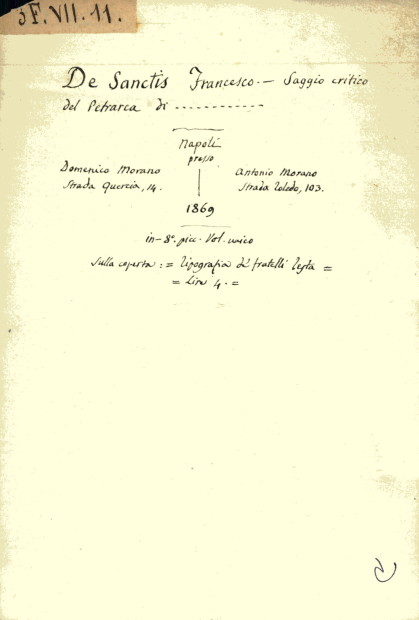 3F.VII.11.
De Sanctis Francesco.— Saggio critico
del Petrarca di ------------
Napoli
presso
Domenico Morano
Strada Quercia, 14.
Antonio Morano
Strada Toledo, 103.
1869
in-8°. picc. Vol. unico
Sulla coperta: = Tipografia de' fratelli Testa =
= Lire 4. =